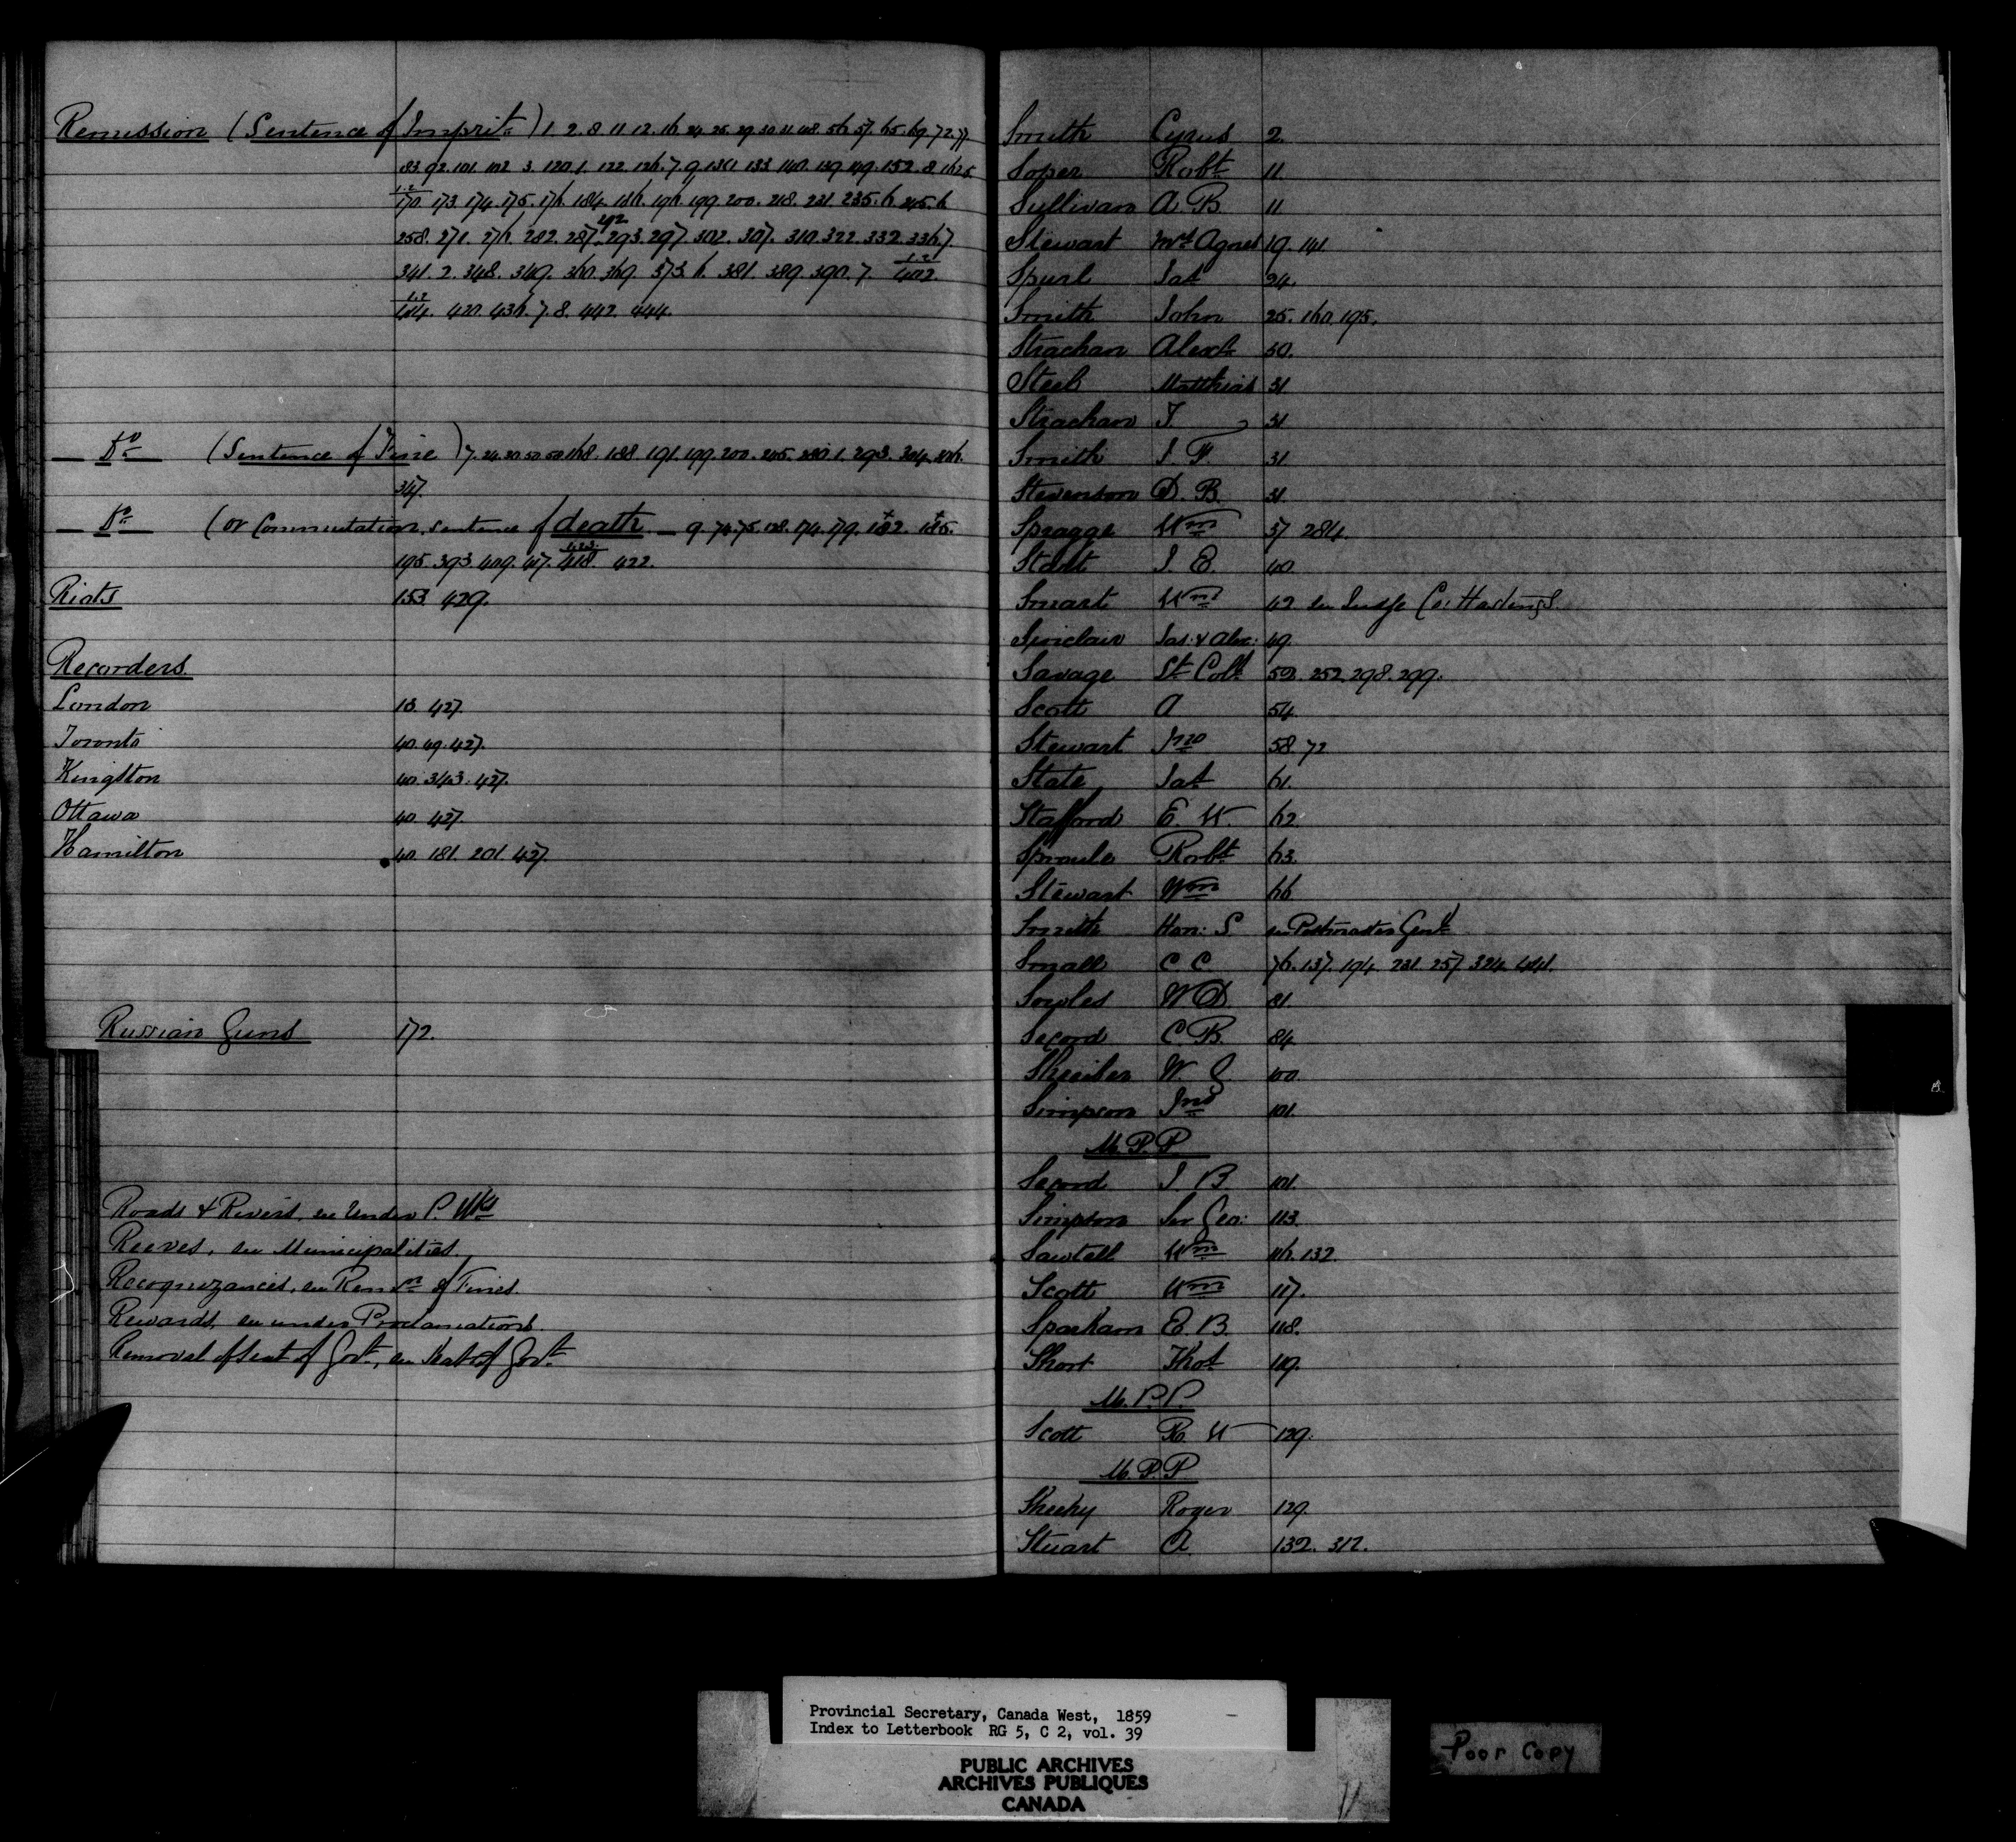 Remission (Sentence of Imprit.) 1. 2. 8. 11. 12. 16. 24. 25. 29. 30. 31. 48. 56. 57. 65. 69. 72. 77.
83. 92. 101. 102. 3. 120. 1. 122. 126. 7. 9. 131. 133. 140. 139. 149. 152. 8. 162. 5.
170. 173. 174. 175. 176. 184. 186. 196. 199. 200. 218. 231. 235. 6. 245. 6
258. 271. 276. 282. 287. 293. 297. 302. 307. 310. 322. 332. 336. 7.
341. 2. 348. 349. 360. 369. 373. 6. 381. 389. 390. 7. 402.
404. 420. 436. 7. 8. 442. 444.
Do (Sentence of Fine) 7. 24. 30. 50. 168. 188. 191. 199. 200. 205. 280. 1. 293. 304. 306.
347.
Do (or Commutation, sentence of death — 9. 74. 75. 128. 174. 179. 182. 185.
195. 393. 409. 417. 418. 422.
Riots 153. 429.
Recorders.
London 13. 427.
Toronto 40. 49. 427.
Kingston 40. 343. 427.
Ottawa 40. 427.
Hamilton 40. 181. 201. 427.
Russian Guns 172.
Roads & Rivers, see under P. Wks
Reeves, see Municipalities
Recognizances, see Remsn of Fines.
Rewards, see under Proclamations.
Removal of seat of Govt., see Seat of Govt.
Smith Cyrus 2.
Soper Robt 11.
Sullivan A. B. 11.
Stewart Mrs Agnes 19. 141.
Spurl Jas 24.
Smith John 25. 160. 195.
Strachan Alexr 30.
Steel Matthias 31
Strachan J. 31
Smith J. F. 31
Stevenson D. B. 31.
Spragge Wm 37. 284.
Start J. E. 40.
Smart Wm 42. see Judge Co: Hastings.
Sinclair Jas: & Alex: 49.
Savage Lt. Col. 52. 252. 298. 299.
Scott A 54.
Stewart Jno 58. 72
State Jas 61.
Stafford E. W. 62.
Sproule Robt 63.
Stewart Wm 66
Smith Hon: S. see Postmaster Genl
Small C C 76. 137. 194. 231. 257. 324. 441.
Sowles W D 81.
Secord C. B. 84.
Shreiber W. G. 100.
Simpson Jno 101.
M. P. P.
Secord J B 101.
Simpson Sir Geo: 113.
Sawtell Wm 116. 132.
Scott Wm 117.
Sparham E. B. 118.
Short Thos 119.
M. P. P.
Scott R W 129.
M. P. P
Sheehy Roger 129.
Stuart A. 132. 312.
Provincial Secretary, Canada West, 1859
Index to Letterbook RG 5, C 2, vol. 39
PUBLIC ARCHIVES
ARCHIVES PUBLIQUES
CANADA
Poor Copy